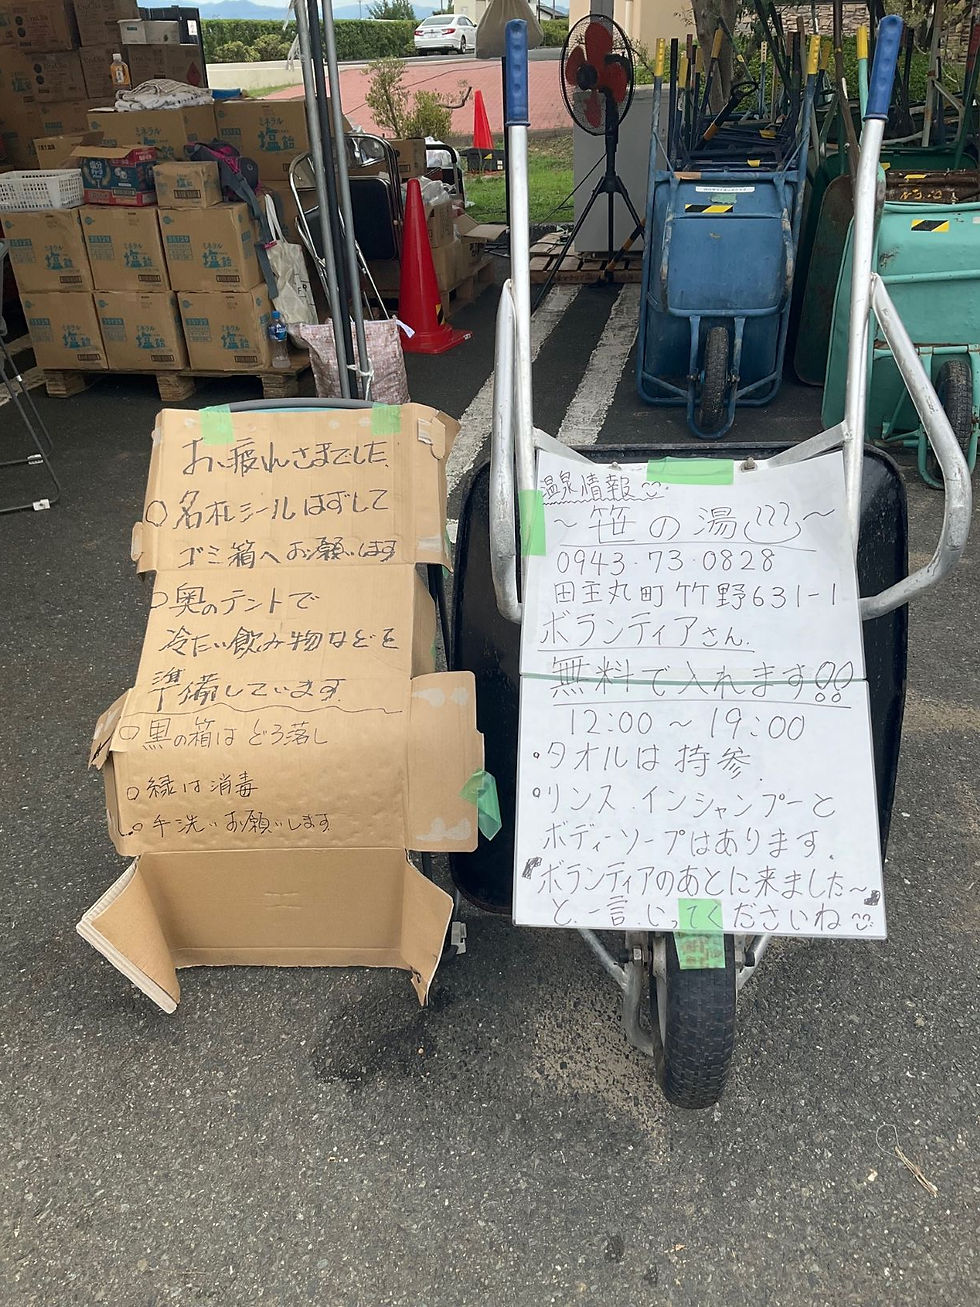 ミネラル
塩飴
お疲れさまでした
○名札シールはずして
ゴミ箱へお願います
○奥のテントで
冷たい飲み物などを
準備しています
○黒の箱はどろ落し
○緑は消毒
○手洗いお願いします
温泉情報
～笹の湯～
0943・73・0828
田主丸町竹野631-1
ボランティアさん.
無料で入れます!!
12:00～19:00
・タオルは持参.
・リンスインシャンプーと
ボディーソープはあります.
「ボランティアのあとに来ました～」
と一言いってくださいね